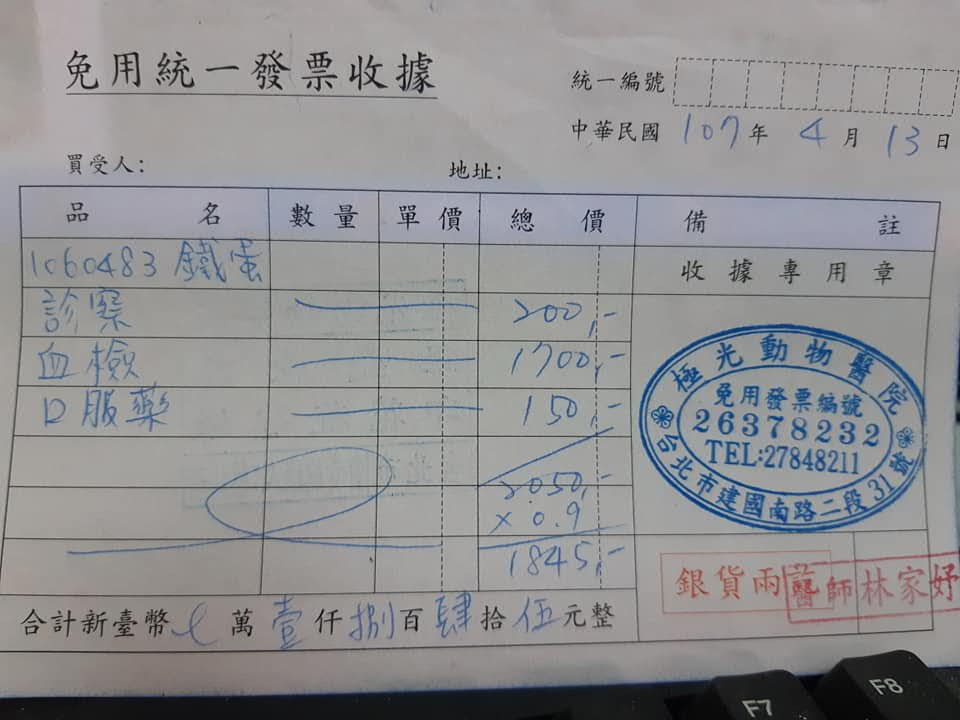 免用統一發票收據
統一編號
中華民國 107 年 4 月 13 日
買受人：
地址：
品名 數量 單價 總價 備註
1060483 鐵蛋
收據專用章
診察 200,-
血檢 1700,-
口服藥 150,-
2050,-
x 0.9
1845,-
極光動物醫院
免用發票編號
26378232
TEL:27848211
台北市建國南路二段31號
銀貨兩
醫師林家妤
合計新臺幣 萬壹仟捌百肆拾伍元整
F7
F8